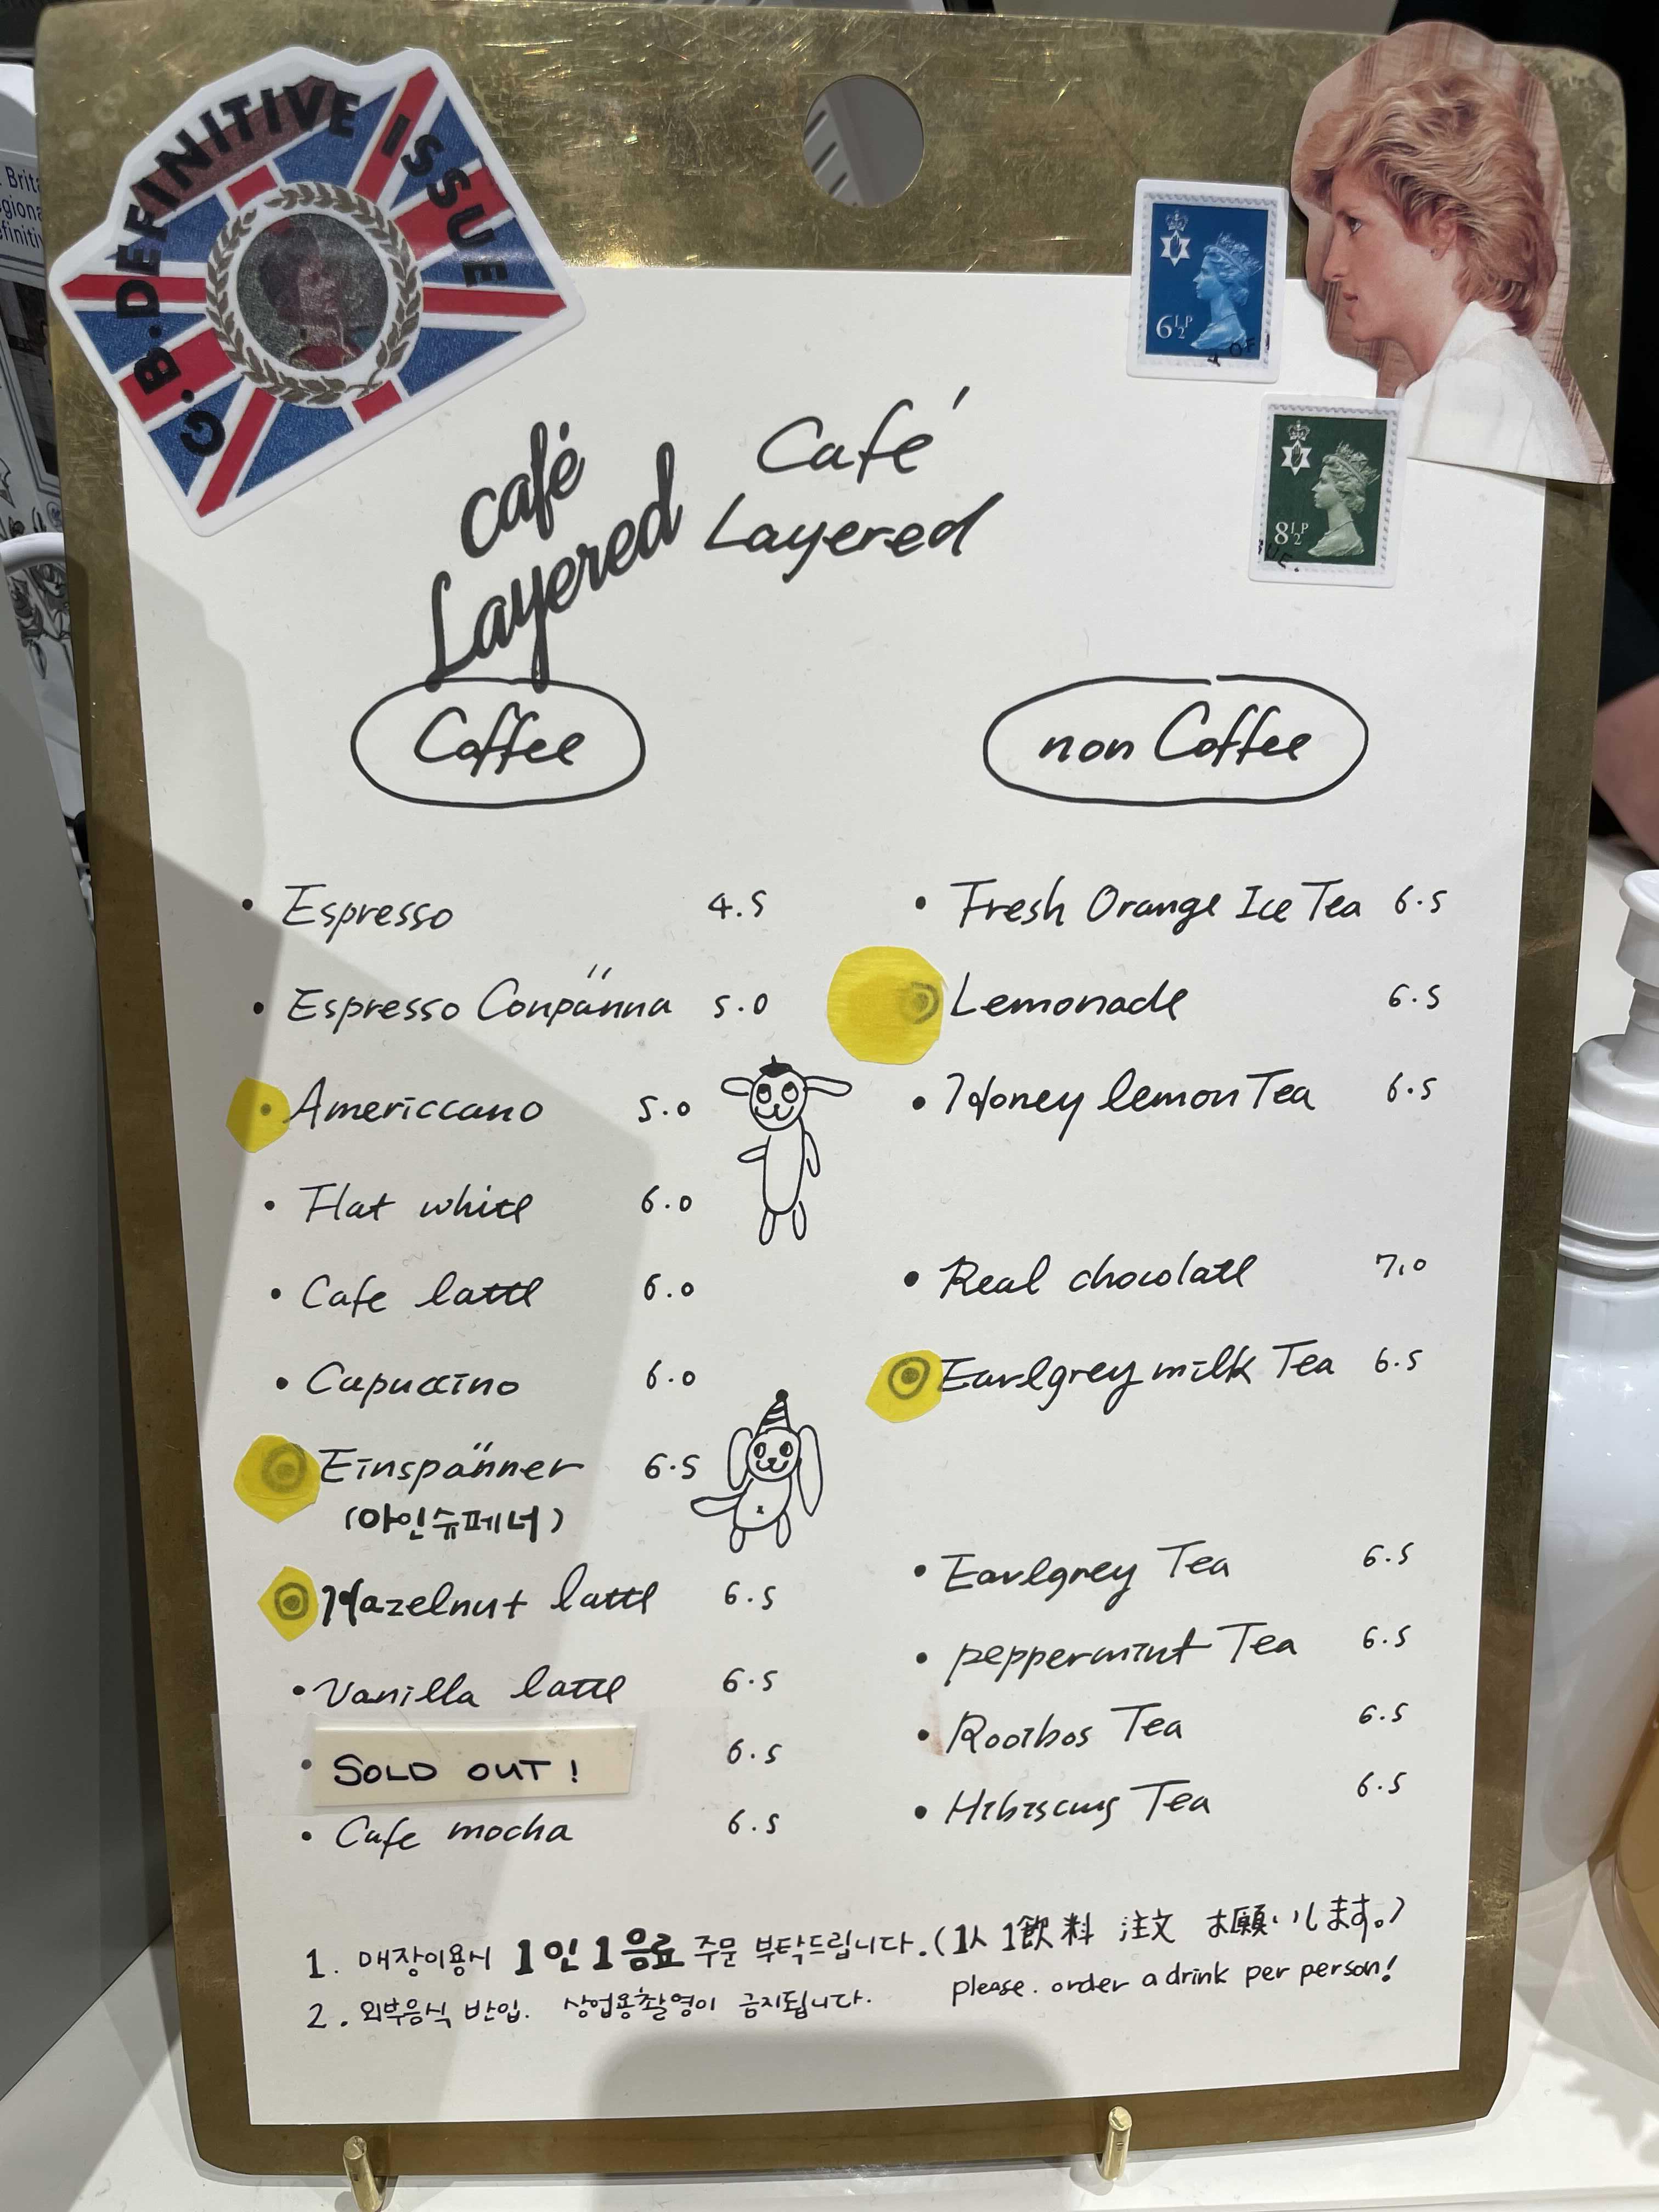 G.B.DEFINITIVE ISSUE
6½P
8½P
café
Layered
Café
Layered
Coffee
• Espresso 4.5
• Espresso Conpänna 5.0
• Americcano 5.0
• Flat white 6.0
• Cafe latte 6.0
• Capuccino 6.0
Einspänner 6.5
(아인슈페너)
Hazelnut latte 6.5
• Vanilla latte 6.5
• SOLD OUT! 6.5
• Cafe mocha 6.5
non Coffee
• Fresh Orange Ice Tea 6.5
Lemonade 6.5
• Honey lemon Tea 6.5
• Real chocolate 7.0
Earlgrey milk Tea 6.5
• Earlgrey Tea 6.5
• peppermint Tea 6.5
• Rooibos Tea 6.5
• Hibiscus Tea 6.5
1.매장이용시 1인 1음료 주문 부탁드립니다. (1人 1飲料 注文 お願いします。)
please. order a drink per person!
2. 외부음식 반입. 상업용촬영이 금지됩니다.